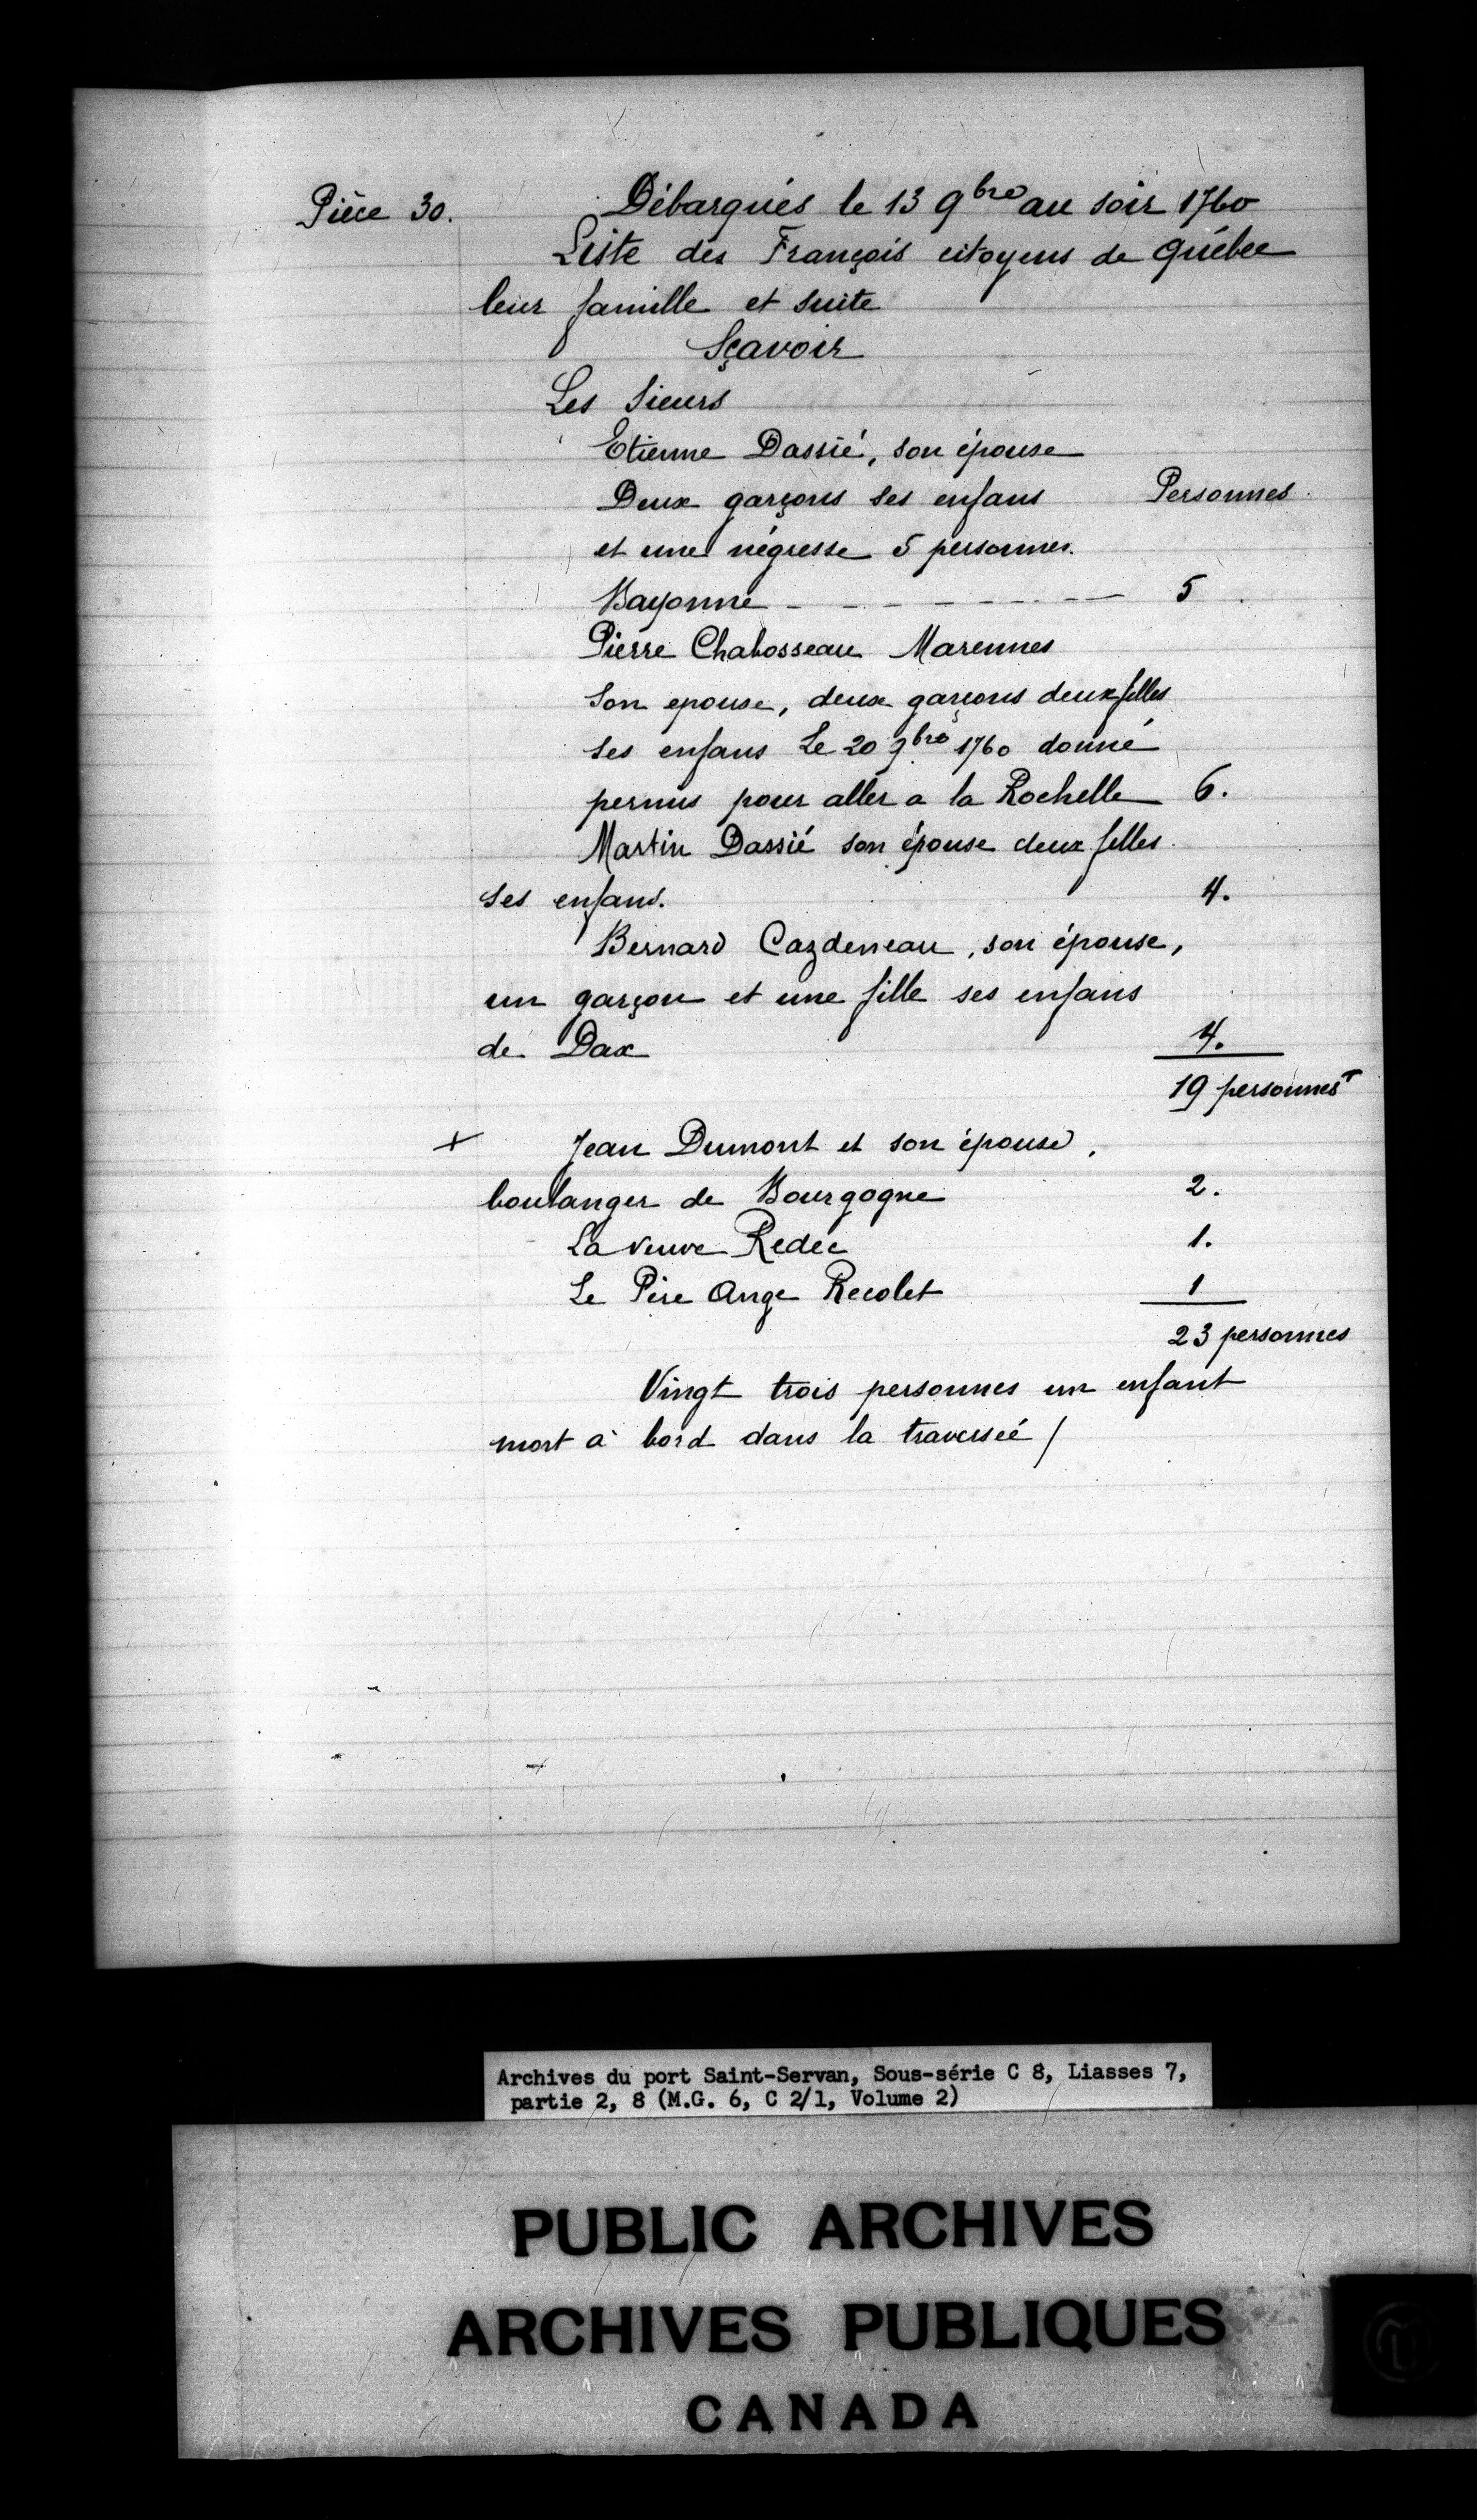 Pièce 30.
Débarqués le 13 9bre au soir 1760
Liste des François citoyens de Québec
leur famille et suite
Sçavoir
Les Sieurs
Etienne Dassié, son épouse
Deux garçons ses enfans Personnes
et une négresse 5 personnes.
Bayonne - - - - - - - - 5
Pierre Chabosseau Marennes
Son epouse, deux garçons deux filles
ses enfans Le 20 9bre 1760 donné
permis pour aller a la Rochelle 6.
Martin Dassié son épouse deux filles
ses enfans. 4.
Bernard Cazdeneau, son épouse,
un garçon et une fille ses enfans
de Dax 4.
19 personnes
+ Jean Dumont et son épouse,
boulanger de Bourgogne 2.
La veuve Redec 1.
Le Père Ange Recolet 1
23 personnes
Vingt trois personnes un enfant
mort à bord dans la traversée /
Archives du port Saint-Servan, Sous-série C 8, Liasses 7,
partie 2, 8 (M.G. 6, C 2/1, Volume 2)
PUBLIC ARCHIVES
ARCHIVES PUBLIQUES
CANADA